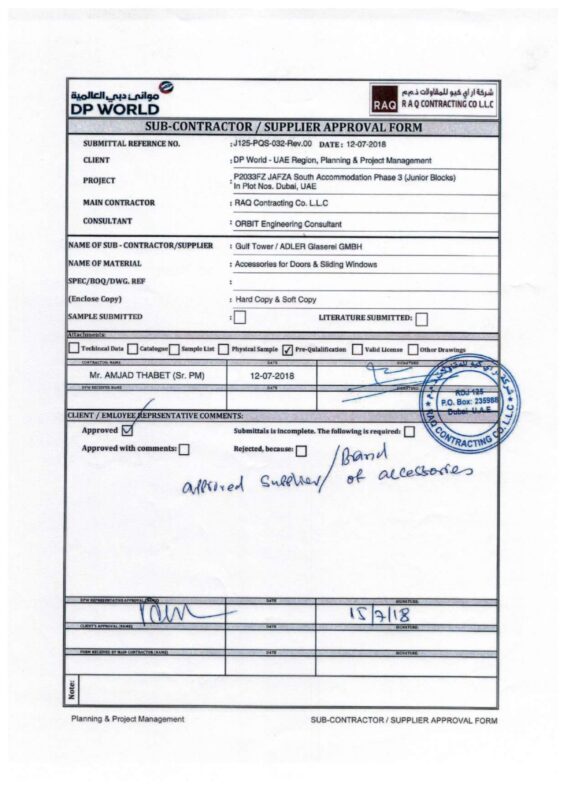 موانئ دبي العالمية
DP WORLD
شركة ار اي كيو للمقاولات ذ.م.م
RAQ R A Q CONTRACTING CO L.L.C
SUB-CONTRACTOR / SUPPLIER APPROVAL FORM
SUBMITTAL REFERNCE NO. : J125-PQS-032-Rev.00 DATE : 12-07-2018
CLIENT : DP World - UAE Region, Planning & Project Management
PROJECT : P2033FZ JAFZA South Accommodation Phase 3 (Junior Blocks)
In Plot Nos. Dubai, UAE
MAIN CONTRACTOR : RAQ Contracting Co. L.L.C
CONSULTANT : ORBIT Engineering Consultant
NAME OF SUB - CONTRACTOR/SUPPLIER : Gulf Tower / ADLER Glaserei GMBH
NAME OF MATERIAL : Accessories for Doors & Sliding Windows
SPEC/BOQ/DWG. REF :
(Enclose Copy) : Hard Copy & Soft Copy
SAMPLE SUBMITTED : LITERATURE SUBMITTED:
Attachments:
Techincal Data Catalogue Sample List Physical Sample Pre-Qulalification Valid License Other Drawings
CONTRACTOR NAME DATE SIGNATURE
Mr. AMJAD THABET (Sr. PM) 12-07-2018
DPW RECEIVER NAME DATE SIGNATURE
RDJ 125
P.O. Box: 235988
Dubai U.A.E
RAQ CONTRACTING CO. L.L.C
CLIENT / EMLOYEE REPRSENTATIVE COMMENTS:
Approved Submittals is incomplete. The following is required:
Approved with comments: Rejected, because:
approved supplier / Brand
of accessories
DPW REPRESENTATIVE APPROVAL (NAME) DATE SIGNATURE
15/7/18
CLIENT'S APPROVAL (NAME) DATE SIGNATURE
FORM RECEIVED BY MAIN CONTRACTOR (NAME) DATE SIGNATURE
Note:
Planning & Project Management SUB-CONTRACTOR / SUPPLIER APPROVAL FORM